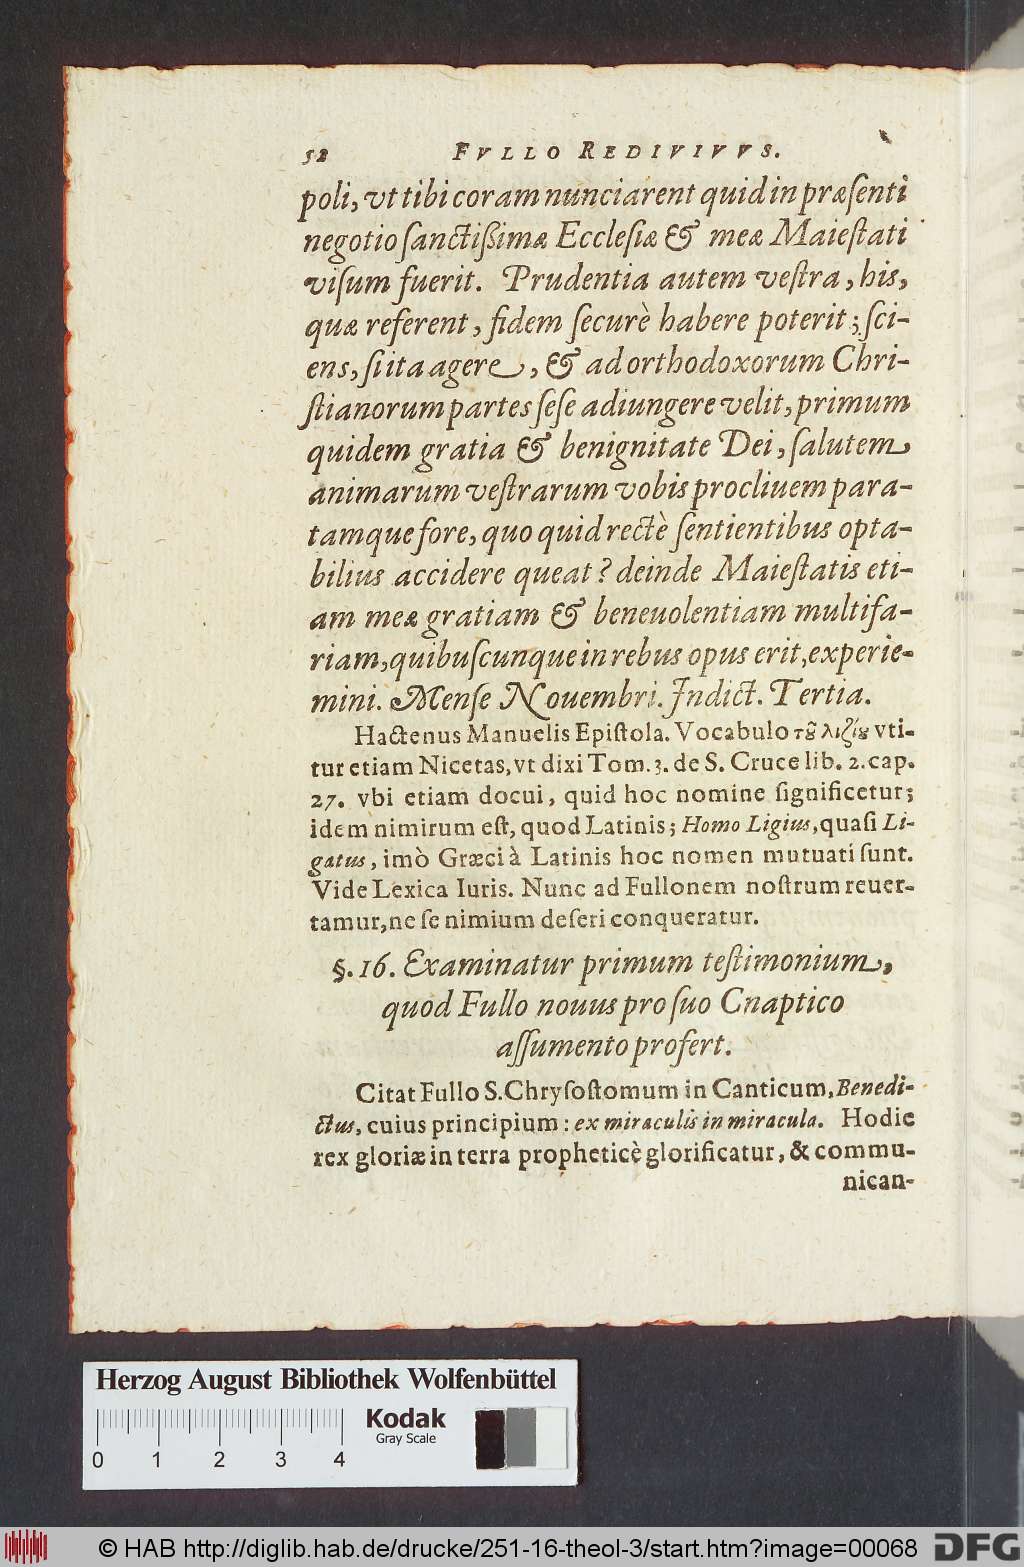 52 FVLLO REDIVIVVS.
poli, vt tibi coram nunciarent quid in præſenti
negotio ſanctißimæ Eccleſiæ & meæ Maieſtati
viſum fuerit. Prudentia autem veſtra, his,
quæ referent, fidem ſecurè habere poterit; ſci-
ens, ſi ita agere, & ad orthodoxorum Chri-
ſtianorum partes ſeſe adiungere velit, primum
quidem gratia & benignitate Dei, ſalutem
animarum veſtrarum vobis procliuem para-
tamque fore, quo quid rectè ſentientibus opta-
bilius accidere queat? deinde Maieſtatis eti-
am meæ gratiam & beneuolentiam multifa-
riam, quibuſcunque in rebus opus erit, experie-
mini. Menſe Nouembri. Indict. Tertia.
Hactenus Manuelis Epiſtola. Vocabulo τȣ͂ λιζίȣ vti-
tur etiam Nicetas, vt dixi Tom. 3. de S. Cruce lib. 2. cap.
27. vbi etiam docui, quid hoc nomine ſignificetur;
idem nimirum eſt, quod Latinis; Homo Ligius, quaſi Li-
gatus, imò Græci à Latinis hoc nomen mutuati ſunt.
Vide Lexica Iuris. Nunc ad Fullonem noſtrum reuer-
tamur, ne ſe nimium deſeri conqueratur.
§. 16. Examinatur primum teſtimonium,
quod Fullo nouus pro ſuo Cnaptico
aſſumento profert.
Citat Fullo S. Chryſoſtomum in Canticum, Benedi-
ctus, cuius principium: ex miraculis in miracula. Hodie
rex gloriæ in terra propheticè glorificatur, & commu-
nican-
Herzog August Bibliothek Wolfenbüttel
Kodak
Gray Scale
0 1 2 3 4
© HAB http://diglib.hab.de/drucke/251-16-theol-3/start.htm?image=00068
DFG